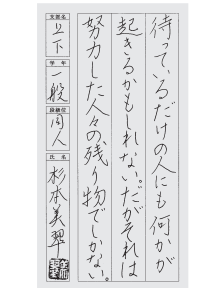 待っているだけの人にも何かが
起きるかもしれない。だがそれは
努力した人々の残り物でしかない。
支部名
立下
学年
一般
段級位
同人
氏名
杉本美翠